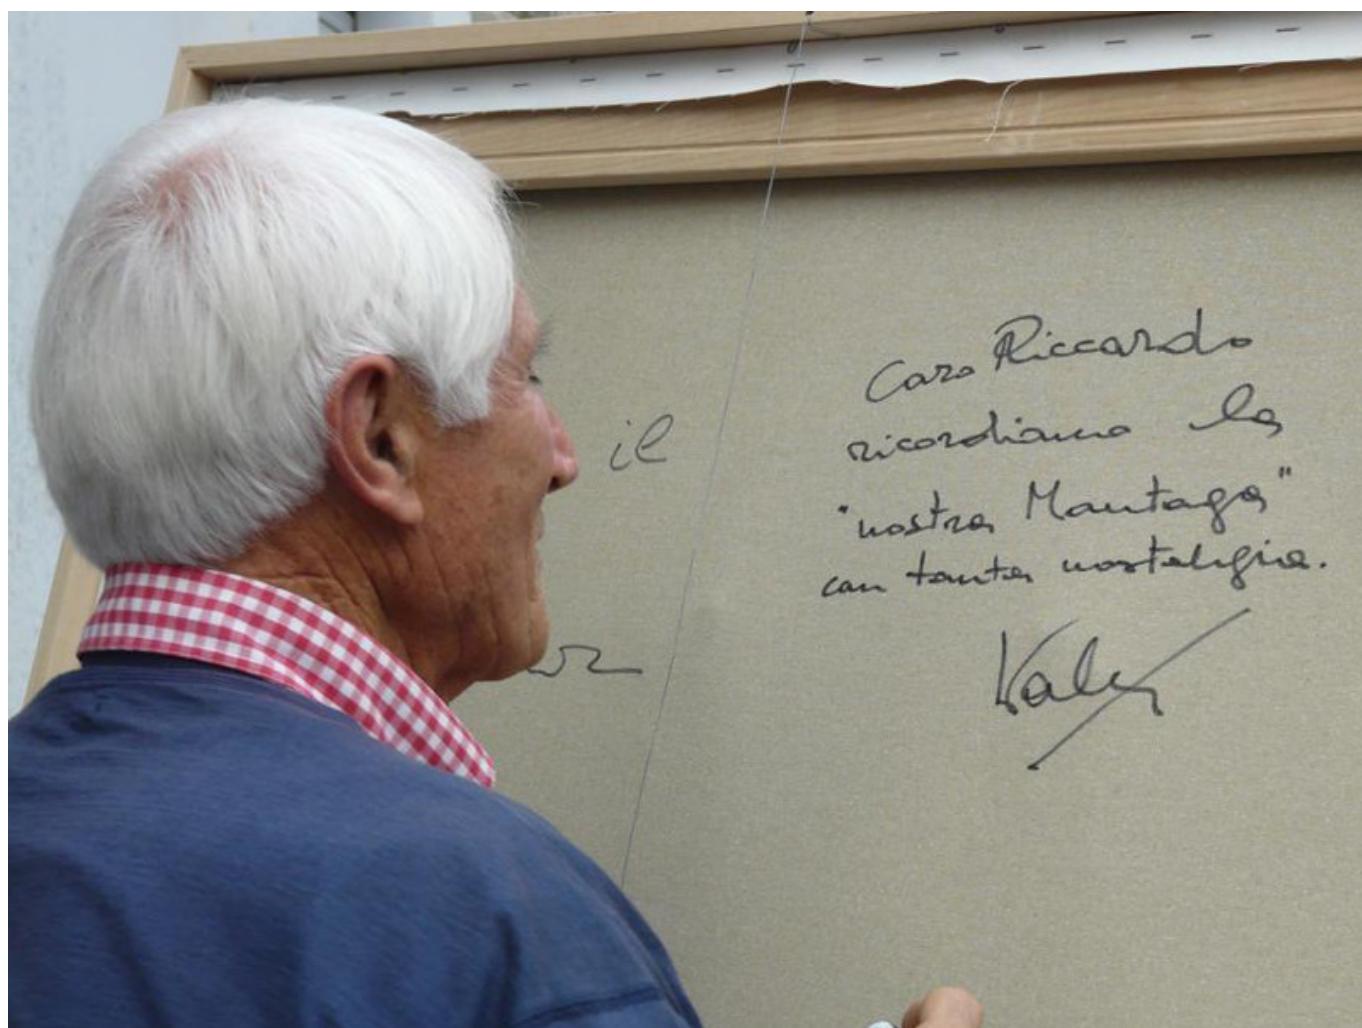 il
Caro Riccardo
ricordiamo la
"nostra Mantaga"
con tanta nostalgia.